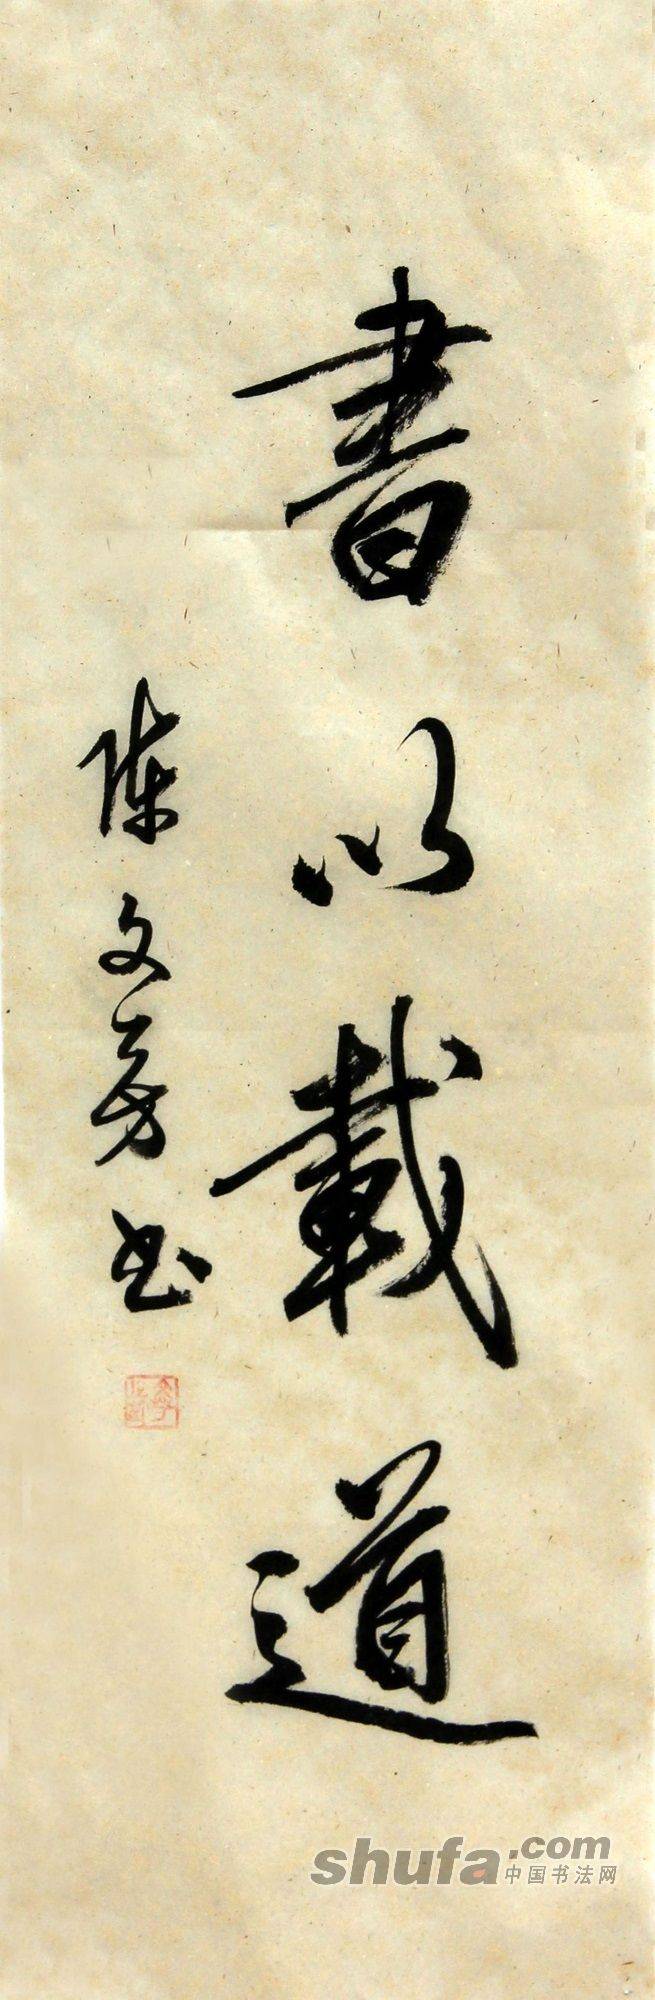 書以載道
陈文芳书
shufa.com
中国书法网